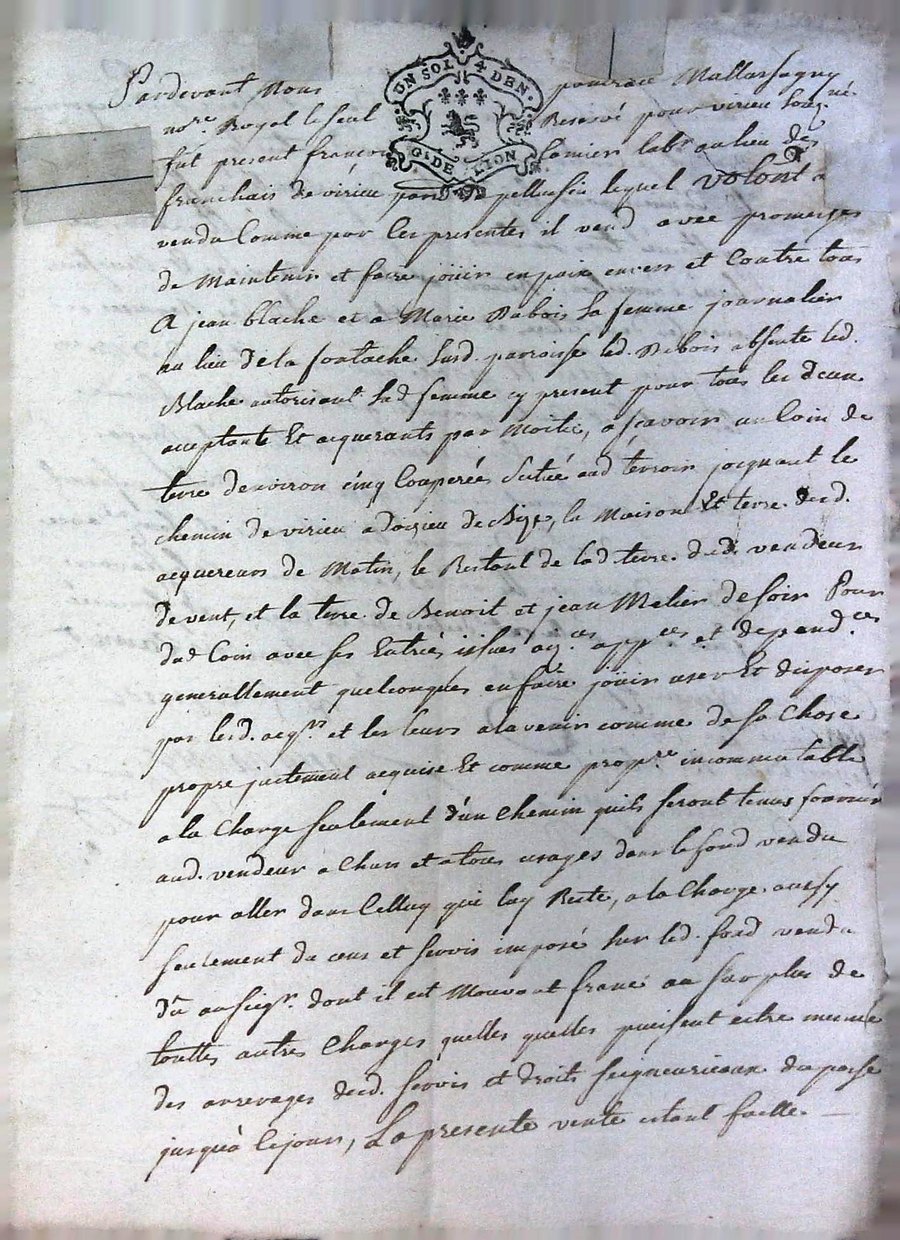 UN SOL 4 DEN.
G. DE LION
Pardevant Nous
no.re Royal le seul Reservé pour virieu soug.né
fut present françois lab.r au lieu des
franchais de virieu par de pellusin lequel volont.
vendu Comme par Ces presentes il vend avec promesses
de Maintenir et faire joüir en paix envers et Contre tous
A jean blache et a Marie Dubois sa femme journalier
au lieu de la fontache susd. parroisse led. Dubois absente led.
Blache autorisant sad femme cy present pour tous les deux
acceptants Et acquerants par Moitié, a scavoir un Coin de
terre denviron cinq Couperée Scitué aud terroir joignant le
chemin de virieu a de Bize, la Maison Et terre desd.
acquereurs de Matin, le Restant de lad terre dud. vendeur
de vent, et la terre de Benoit et jean Melier de soir Pour
dud Coin avec ses Entrées issues aig.ces app.ces et depend.ces
generallement quelconques en faire joüir user Et disposer
par lesd. acq.rs et les leurs alavenir comme de sa Chose
propre justement acquise Et comme propr.re incommutable
a la Charge seulement d'un Chemin quils seront tenus fournir
aud. vendeur a Chars et a tous usages dans le fond vendu
pour aller dans Celluy qui luy Reste, a la Charge aussy
seulement du cens et servis imposé sur led. fond vendu
dû au seig.r dont il est Mouvant franc au surplus de
touttes autres Charges quelles quelles puissent estre mesme
des arrerages desd. servis et droits seigneuriaux du passé
jusqu'à Cejour, La presente vente estant faitte